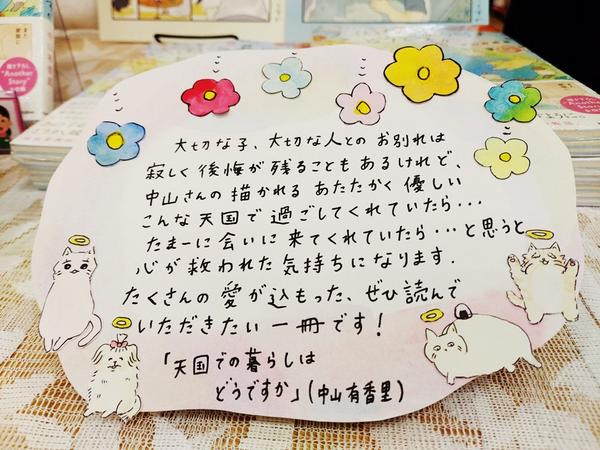 大切な子、大切な人との お別れは
寂しく 後悔が 残ることも あるけれど、
中山さんの 描かれる あたたかく 優しい
こんな 天国で 過ごしてくれていたら…
たまーに 会いに 来てくれていたら…と思うと
心が 救われた 気持ちに なります.
たくさんの 愛が 込もった、ぜひ 読んで
いただきたい 一冊です!
「天国での暮らしは
どうですか」(中山有香里)
描き下ろし
"Another
Story"